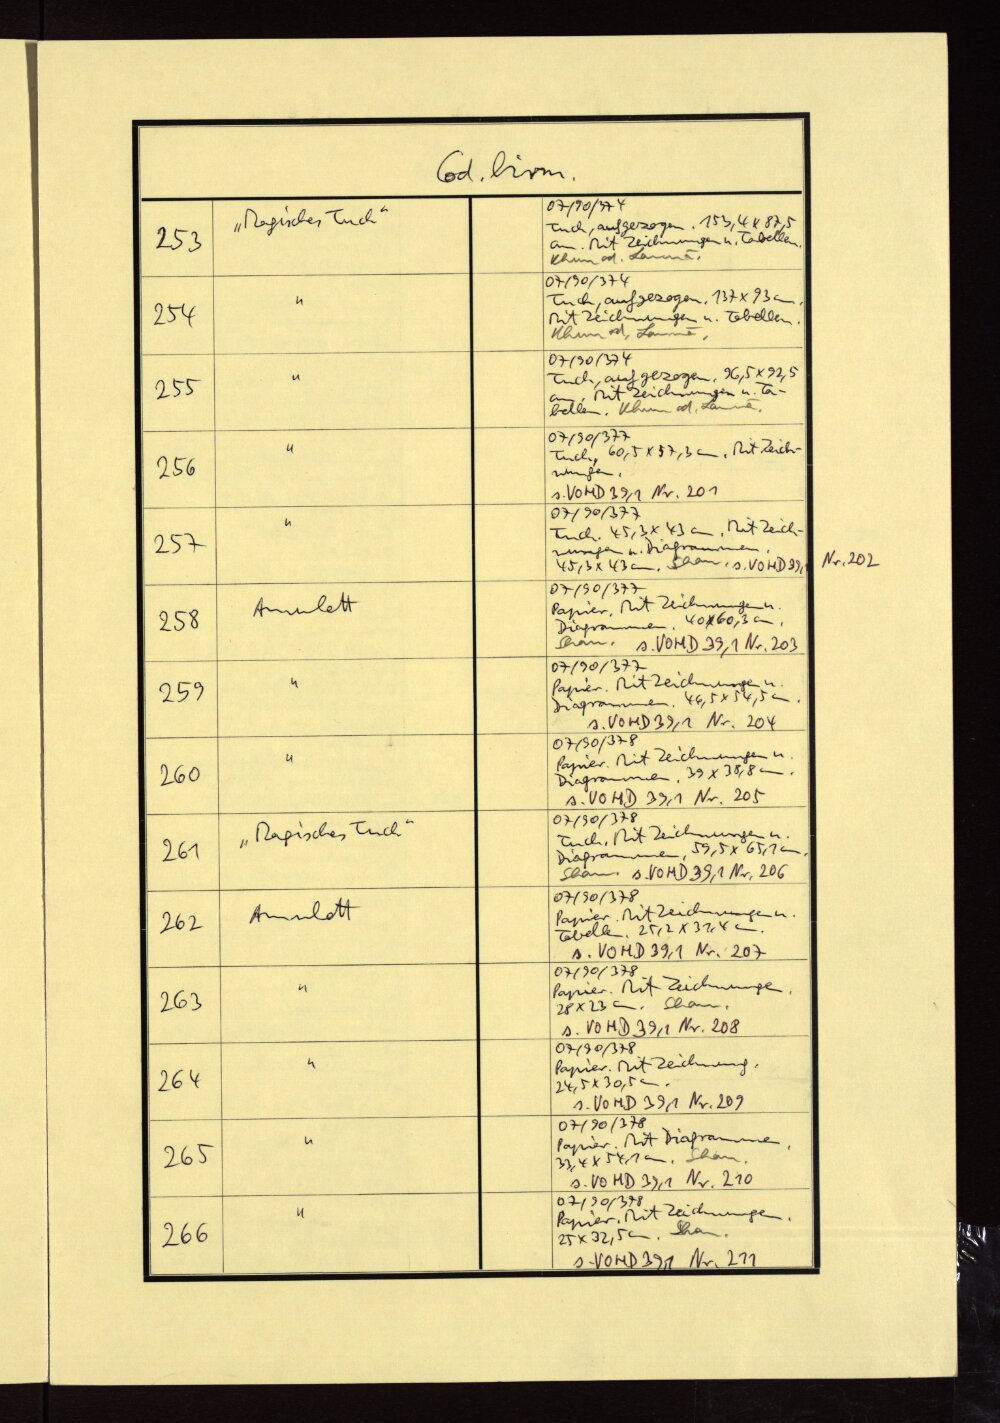 Cod. birm.
253
„Magisches Tuch“
07/90/374
Tuch, aufgezogen. 153,4 x 87,5
cm. Mit Zeichnungen u. Tabellen.
Khün od. Lannā.
254
"
07/90/374
Tuch, aufgezogen. 137 x 93 cm.
Mit Zeichnungen u. Tabellen.
Khün od. Lannā.
255
"
07/90/374
Tuch, aufgezogen. 96,5 x 92,5
cm. Mit Zeichnungen u. Ta-
bellen. Khün od. Lannā.
256
"
07/90/377
Tuch, 60,5 x 57,3 cm. Mit Zeich-
nungen.
s. VOHD 39,1 Nr. 201
257
"
07/90/377
Tuch. 45,3 x 43 cm. Mit Zeich-
nungen u. Diagrammen.
45,3 x 43 cm. Shan. s. VOHD 39,1 Nr. 202
258
Amulett
07/90/377
Papier. Mit Zeichnungen u.
Diagrammen. 40 x 60,3 cm.
Shan. s. VOHD 39,1 Nr. 203
259
"
07/90/377
Papier. Mit Zeichnungen u.
Diagrammen. 46,5 x 54,5 cm.
s. VOHD 39,1 Nr. 204
260
"
07/90/378
Papier. Mit Zeichnungen u.
Diagrammen. 39 x 38,8 cm.
s. VOHD 39,1 Nr. 205
261
„Magisches Tuch“
07/90/378
Tuch. Mit Zeichnungen u.
Diagrammen. 59,5 x 65,1 cm.
Shan. s. VOHD 39,1 Nr. 206
262
Amulett
07/90/378
Papier. Mit Zeichnungen u.
Tabelle. 25,2 x 31,4 cm.
s. VOHD 39,1 Nr. 207
263
"
07/90/378
Papier. Mit Zeichnungen.
28 x 23 cm. Shan.
s. VOHD 39,1 Nr. 208
264
"
07/90/378
Papier. Mit Zeichnung.
24,5 x 30,5 cm.
s. VOHD 39,1 Nr. 209
265
"
07/90/378
Papier. Mit Diagramme.
33,4 x 54,1 cm. Shan.
s. VOHD 39,1 Nr. 210
266
"
07/90/378
Papier. Mit Zeichnungen.
25 x 32,5 cm. Shan.
s. VOHD 39,1 Nr. 211